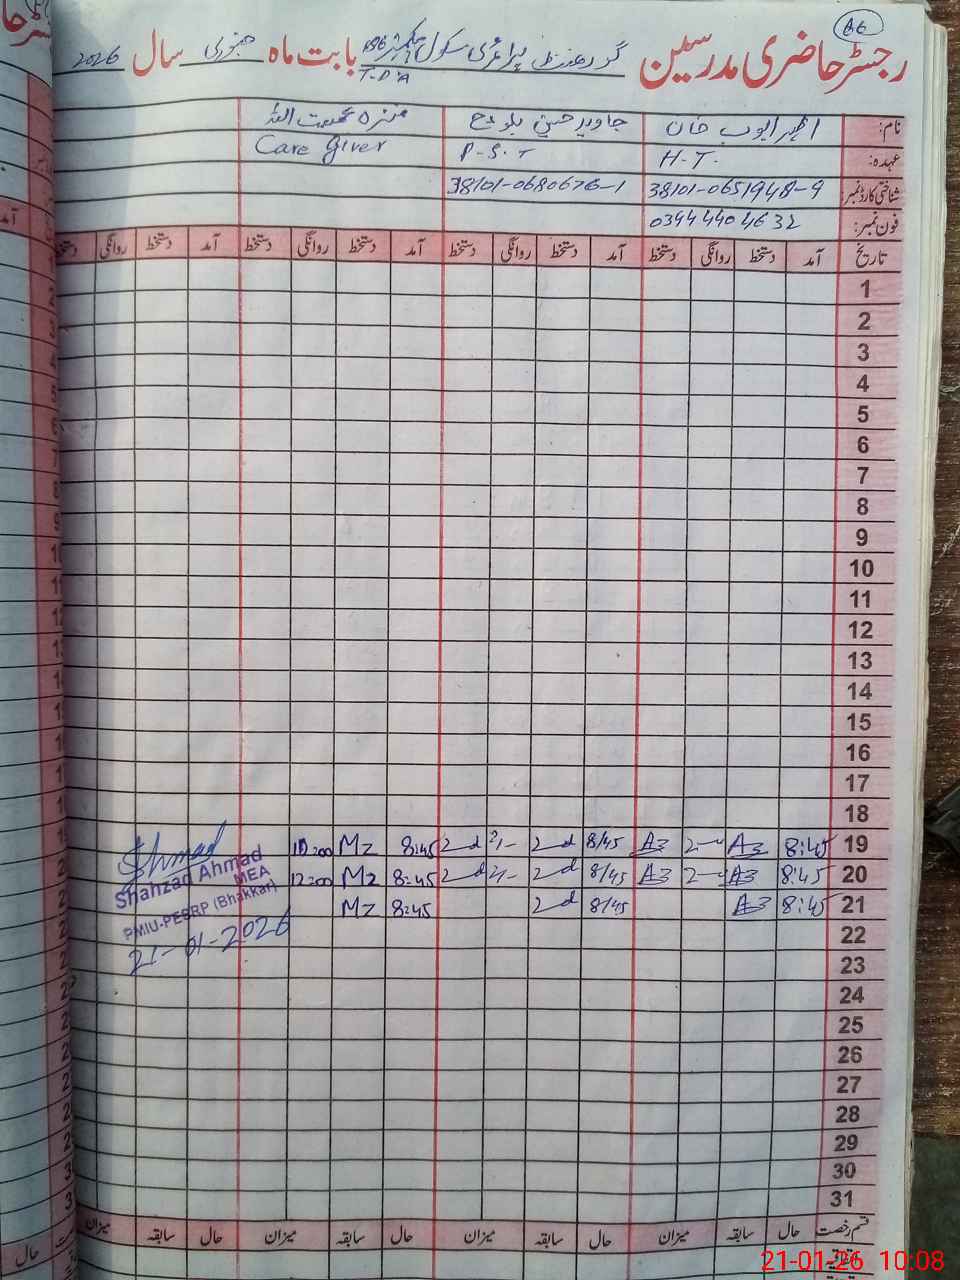 A6
رجسٹر حاضری مدرسین گورنمنٹ پرائمری سکول چک نمبر 196 T.D.A بابت ماہ جنوری سال 2026
نام: اظہر ایوب خان جاوید حسین بلوچ
عہدہ: H.T. P.S.T Care Giver
شناختی کارڈ نمبر 38101-0651948-9 38101-0680676-1
فون نمبر: 03444404632
تاریخ آمد دستخط روانگی دستخط آمد دستخط روانگی دستخط آمد دستخط روانگی دستخط آمد دستخط روانگی دستخط
1
2
3
4
5
6
7
8
9
10
11
12
13
14
15
16
17
18
19 8:45 8/45 8:45 Mz
20 8:45 8/45 8:45 Mz 12:00
21 8:45 8/45 8:45 Mz
Ahmad
Shahzad Ahmad
MEA
PMIU-PESRP (Bhakkar)
21-01-2026
22
23
24
25
26
27
28
29
30
31
قسم رخصت حال سابقہ میزان حال سابقہ میزان حال سابقہ میزان حال سابقہ میزان
اتفاقیہ
21-01-26 10:08